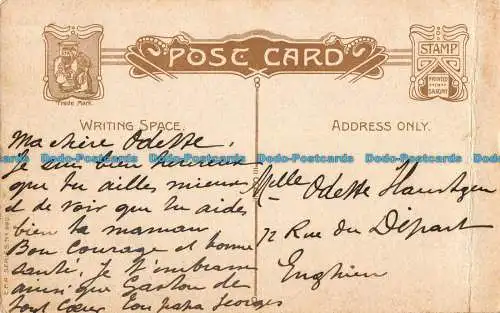 POST CARD
Trade Mark.
STAMP
PRINTED
IN
SAXONY
WRITING SPACE.
ADDRESS ONLY.
Ma chère Odette,
Je suis bien heureux
que tu ailles mieux
et de voir que tu aides
bien ta maman
Bon courage et bonne
santé, je t'embrasse
ainsi que Gaston de
tout cœur Ton papa Georges
Mlle Odette
72 Rue du Départ
Enghien
Dodo-Postcards Dodo-Postcards Dodo-Postcards Dodo-Postcards Dodo-Postcards